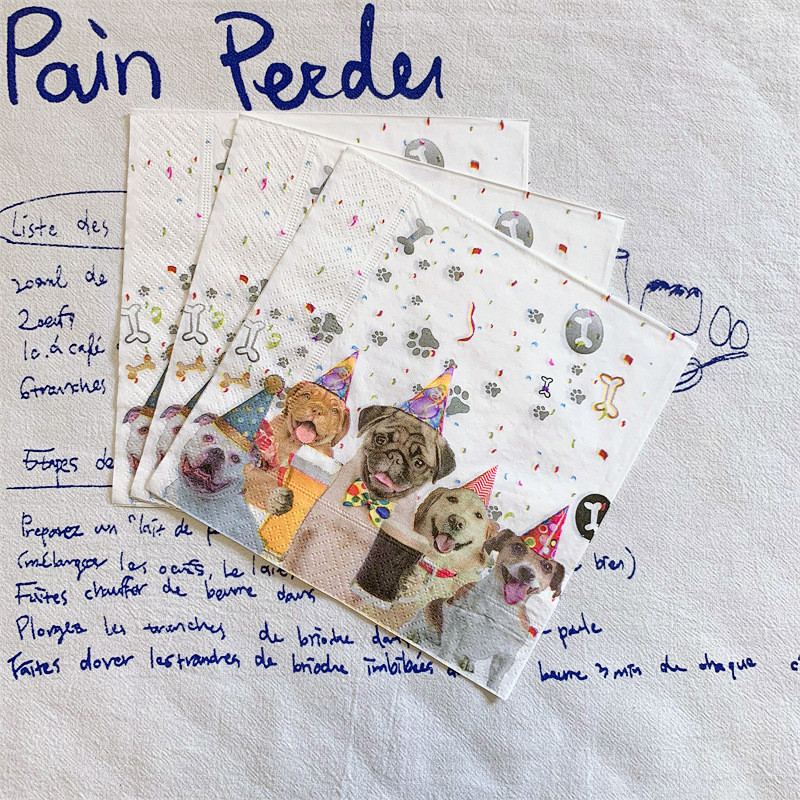 Pain Perdu
Liste des
200ml de
2 oeufs
1c. à café
6 tranches
Etapes de
Préparez un "lait de p
(mélangez les oeufs, le lait, bien)
Faites chauffer de beurre dans
Plongez les tranches de brioche dans -perdu
Faites dorer les tranches de brioche imbibées d beurre 3 min de chaque c